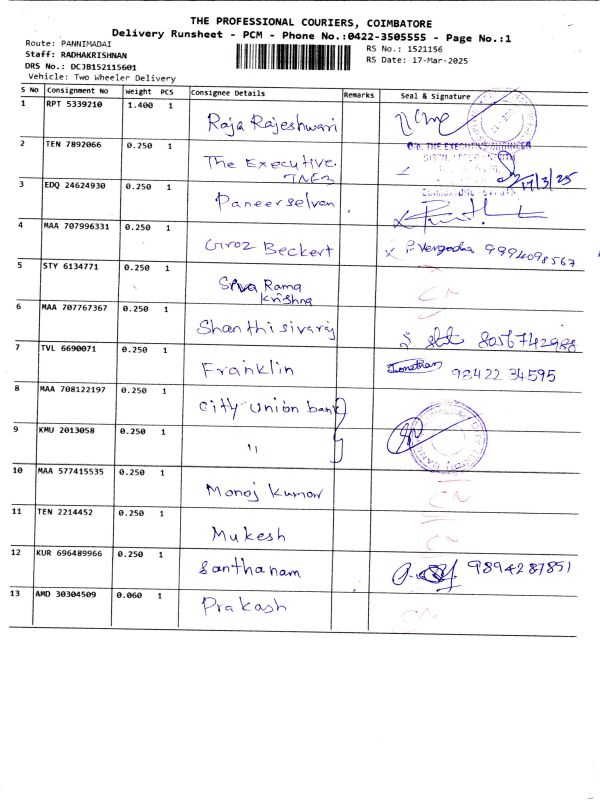 THE PROFESSIONAL COURIERS, COIMBATORE
Delivery Runsheet - PCM - Phone No.:0422-3505555 - Page No.:1
Route: PANNIMADAI
RS No.: 1521156
Staff: RADHAKRISHNAN
RS Date: 17-Mar-2025
DRS No.: DCJB152115601
Vehicle: Two Wheeler Delivery
S No Consignment No Weight PCS Consignee Details Remarks Seal & Signature
1 RPT 5339210 1.400 1 Raja Rajeshwari
2 TEN 7892066 0.250 1 The Executive O/o. THE EXECUTIVE ENGINEER
TNEB 17/3/25
3 EDQ 24624930 0.250 1 Paneerselvan
4 MAA 707996331 0.250 1 Groz Beckert 9994098567
5 STY 6134771 0.250 1 Siva Rama
Krishna
6 MAA 707767367 0.250 1 Shanthi sivaraj 8056742988
7 TVL 6690071 0.250 1 Franklin Jonathan 98422 34595
8 MAA 708122197 0.250 1 City union bank
9 KMU 2013058 0.250 1 "
10 MAA 577415535 0.250 1 Manoj Kumar
11 TEN 2214452 0.250 1 Mukesh
12 KUR 696489966 0.250 1 Santhanam 9894287851
13 AMD 30304509 0.060 1 Prakash